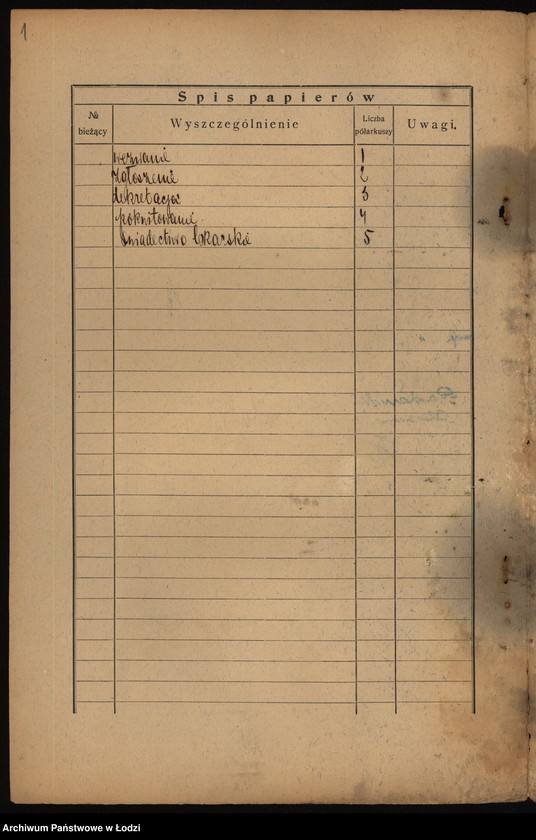 1
Spis papierów
№ bieżący
Wyszczególnienie
Liczba półarkuszy
Uwagi.
wezwanie 1
zgłoszenie 2
dekretacja 3
pokwitowanie 4
świadectwo lekarskie 5
Archiwum Państwowe w Łodzi